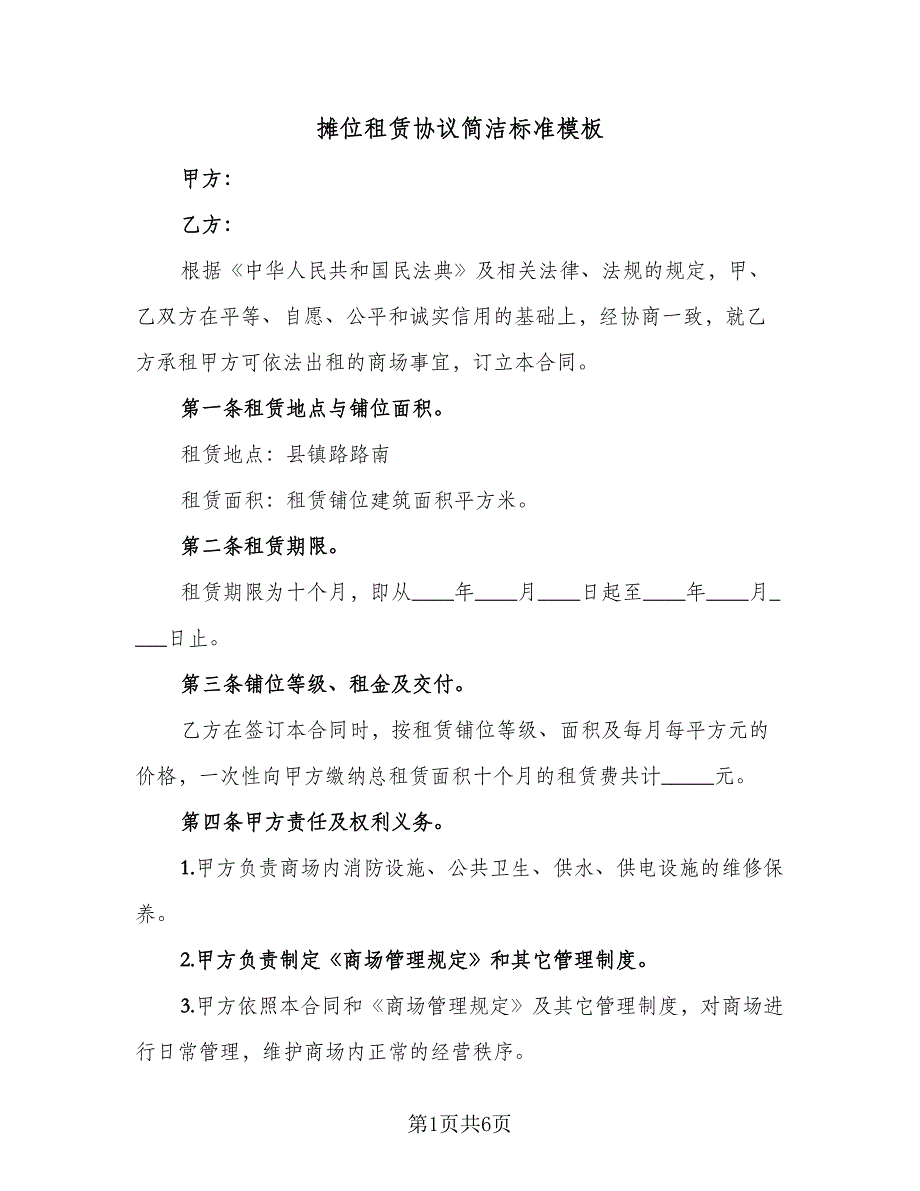 摊位租赁协议简洁标准模板
甲方：
乙方：
根据《中华人民共和国民法典》及相关法律、法规的规定，甲、
乙双方在平等、自愿、公平和诚实信用的基础上，经协商一致，就乙
方承租甲方可依法出租的商场事宜，订立本合同。
第一条租赁地点与铺位面积。
租赁地点：县镇路路南
租赁面积：租赁铺位建筑面积平方米。
第二条租赁期限。
租赁期限为十个月，即从____年____月____日起至____年____月_
___日止。
第三条铺位等级、租金及交付。
乙方在签订本合同时，按租赁铺位等级、面积及每月每平方元的
价格，一次性向甲方缴纳总租赁面积十个月的租赁费共计_____元。
第四条甲方责任及权利义务。
1.甲方负责商场内消防设施、公共卫生、供水、供电设施的维修保
养。
2.甲方负责制定《商场管理规定》和其它管理制度。
3.甲方依照本合同和《商场管理规定》及其它管理制度，对商场进
行日常管理，维护商场内正常的经营秩序。
第1页共6页